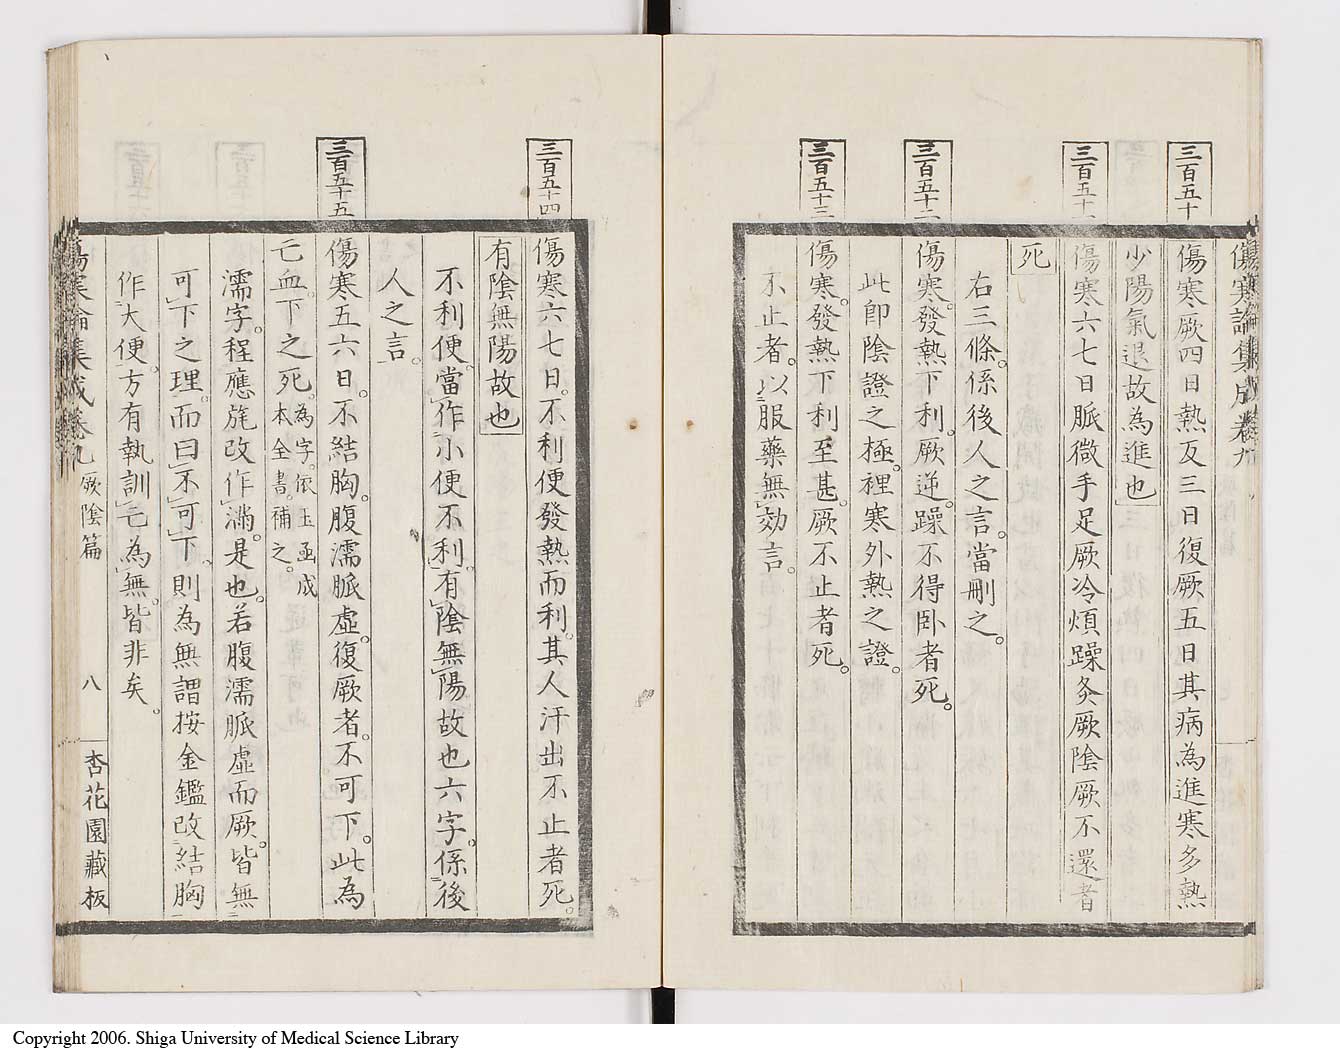 傷寒論集成卷九
三百五十
傷寒厥四日熱反三日復厥五日其病為進寒多熱
少陽氣退故為進也
三百五十一
傷寒六七日脈微手足厥冷煩躁灸厥陰厥不還者
死
右三條。係後人之言。當刪之。
三百五十二
傷寒。發熱下利。厥逆。躁不得臥者死。
此卽陰證之極。裡寒外熱之證。
三百五十三
傷寒。發熱下利至甚。厥不止者死。
不止者。以服藥無効言。
三百五十四
傷寒六七日。不利便發熱而利。其人汗出不止者死。
有陰無陽故也
不利便。當作小便不利。有陰無陽故也六字。係後
人之言。
三百五十五
傷寒五六日。不結胸。腹濡脈虛。復厥者。不可下。此為
亡血。下之死。為字。依玉函成本全書。補之。
濡字。程應旄改作滿。是也。若腹濡脈虛而厥。皆無
可下之理。而曰不可下。則為無謂按金鑑改結胸
作大便。方有執訓亡為無。皆非矣。
傷寒論集成卷九
厥陰篇
八
杏花園藏板
Copyright 2006. Shiga University of Medical Science Library